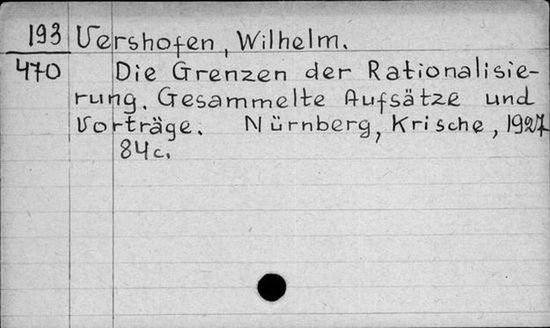 193 Vershofen, Wilhelm.
470 Die Grenzen der Rationalisie-
rung. Gesammelte Aufsätze und
Vorträge. Nürnberg, Krische, 1927.
84c.